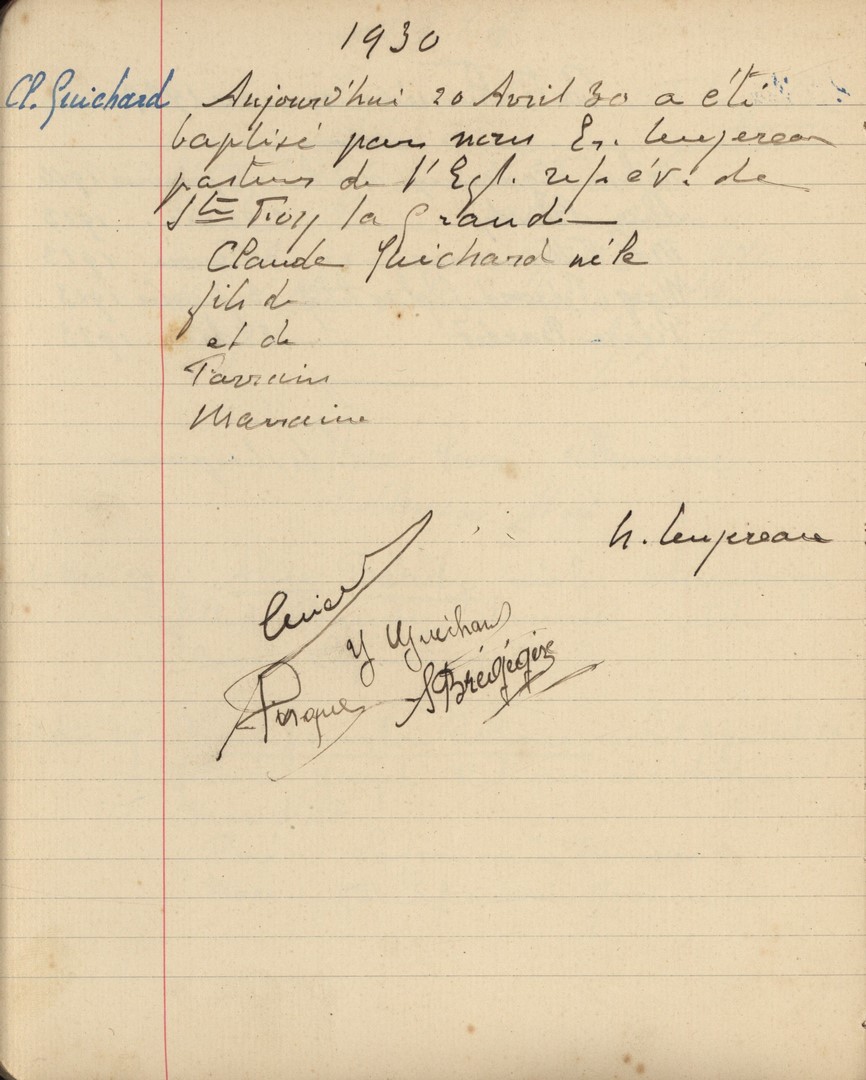 1930
Cl. Guichard
Aujourd'hui 20 Avril 30 a été
baptisé par nous
pasteur de l'Egl. ref. év. de
Ste Foy la Grande
Claude Guichard né le
fils de
et de
Parrain
Marraine
Y Guichard